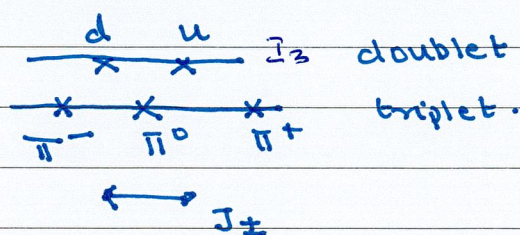 d u I₃ doublet
triplet.
π⁻ π⁰ π⁺
J±